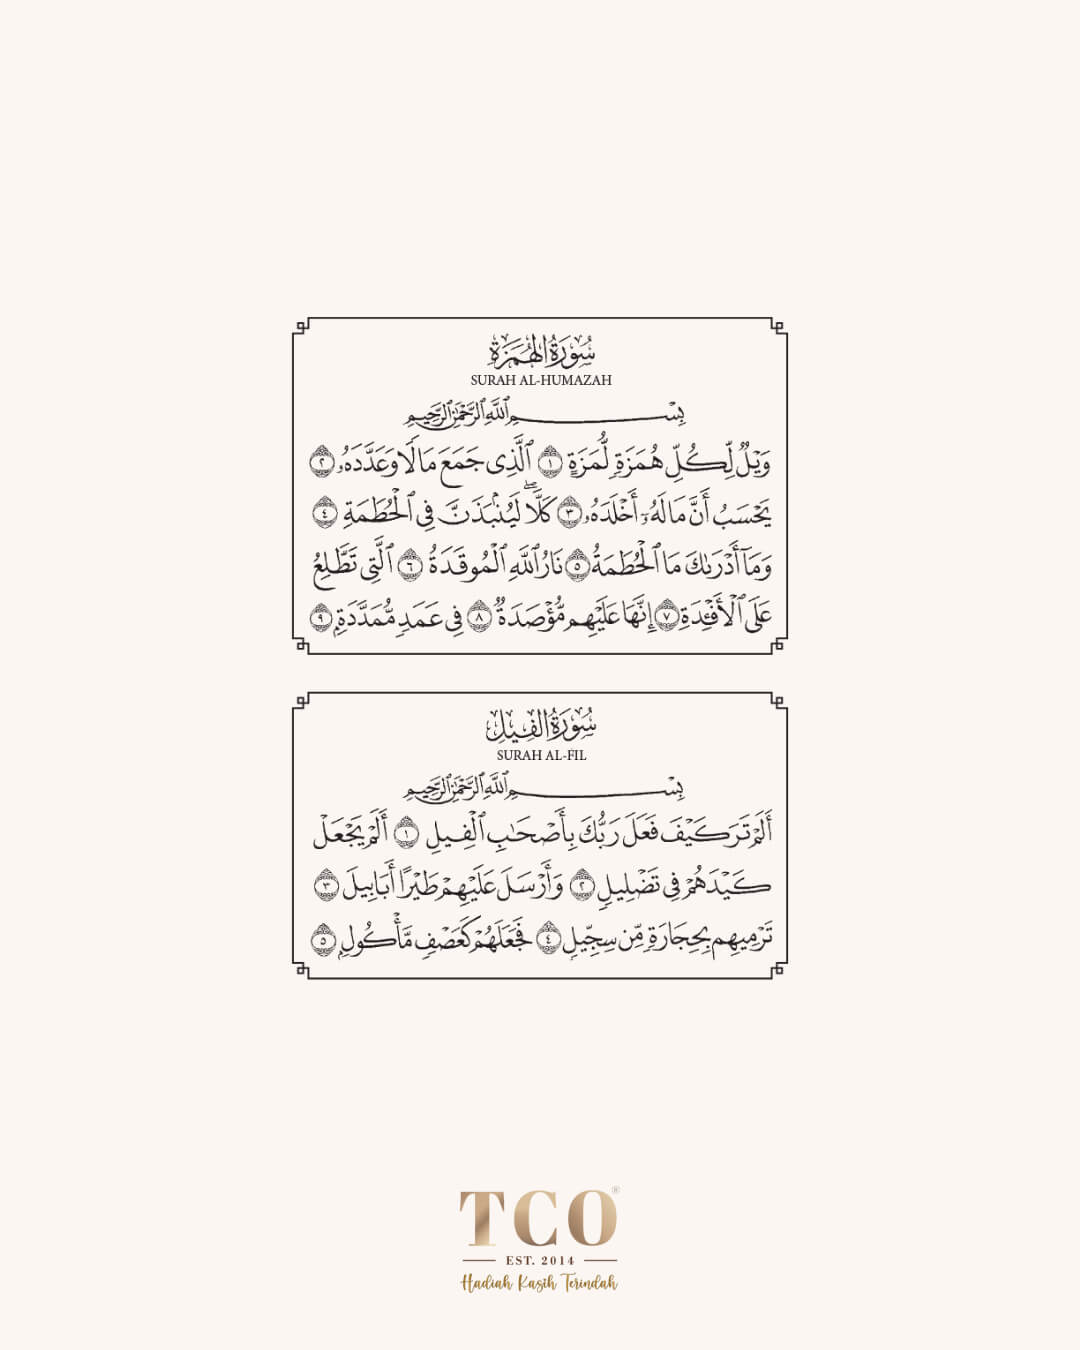 سُورَةُ الْهُمَزَةِ
SURAH AL-HUMAZAH
بِسْمِ اللَّهِ الرَّحْمَٰنِ الرَّحِيمِ
وَيْلٌ لِّكُلِّ هُمَزَةٍ لُّمَزَةٍ ١ ٱلَّذِى جَمَعَ مَالًا وَعَدَّدَهُۥ ٢
يَحْسَبُ أَنَّ مَالَهُۥٓ أَخْلَدَهُۥ ٣ كَلَّاۖ لَيُنۢبَذَنَّ فِى ٱلْحُطَمَةِ ٤
وَمَآ أَدْرَىٰكَ مَا ٱلْحُطَمَةُ ٥ نَارُ ٱللَّهِ ٱلْمُوقَدَةُ ٦ ٱلَّتِى تَطَّلِعُ
عَلَى ٱلْأَفْـِٔدَةِ ٧ إِنَّهَا عَلَيْهِم مُّؤْصَدَةٌ ٨ فِى عَمَدٍ مُّمَدَّدَةٍۭ ٩
سُورَةُ الْفِيلِ
SURAH AL-FIL
بِسْمِ اللَّهِ الرَّحْمَٰنِ الرَّحِيمِ
أَلَمْ تَرَ كَيْفَ فَعَلَ رَبُّكَ بِأَصْحَٰبِ ٱلْفِيلِ ١ أَلَمْ يَجْعَلْ
كَيْدَهُمْ فِى تَضْلِيلٍ ٢ وَأَرْسَلَ عَلَيْهِمْ طَيْرًا أَبَابِيلَ ٣
تَرْمِيهِم بِحِجَارَةٍ مِّن سِجِّيلٍ ٤ فَجَعَلَهُمْ كَعَصْفٍ مَّأْكُولٍۭ ٥
TCO®
EST. 2014
Hadiah Kasih Terindah